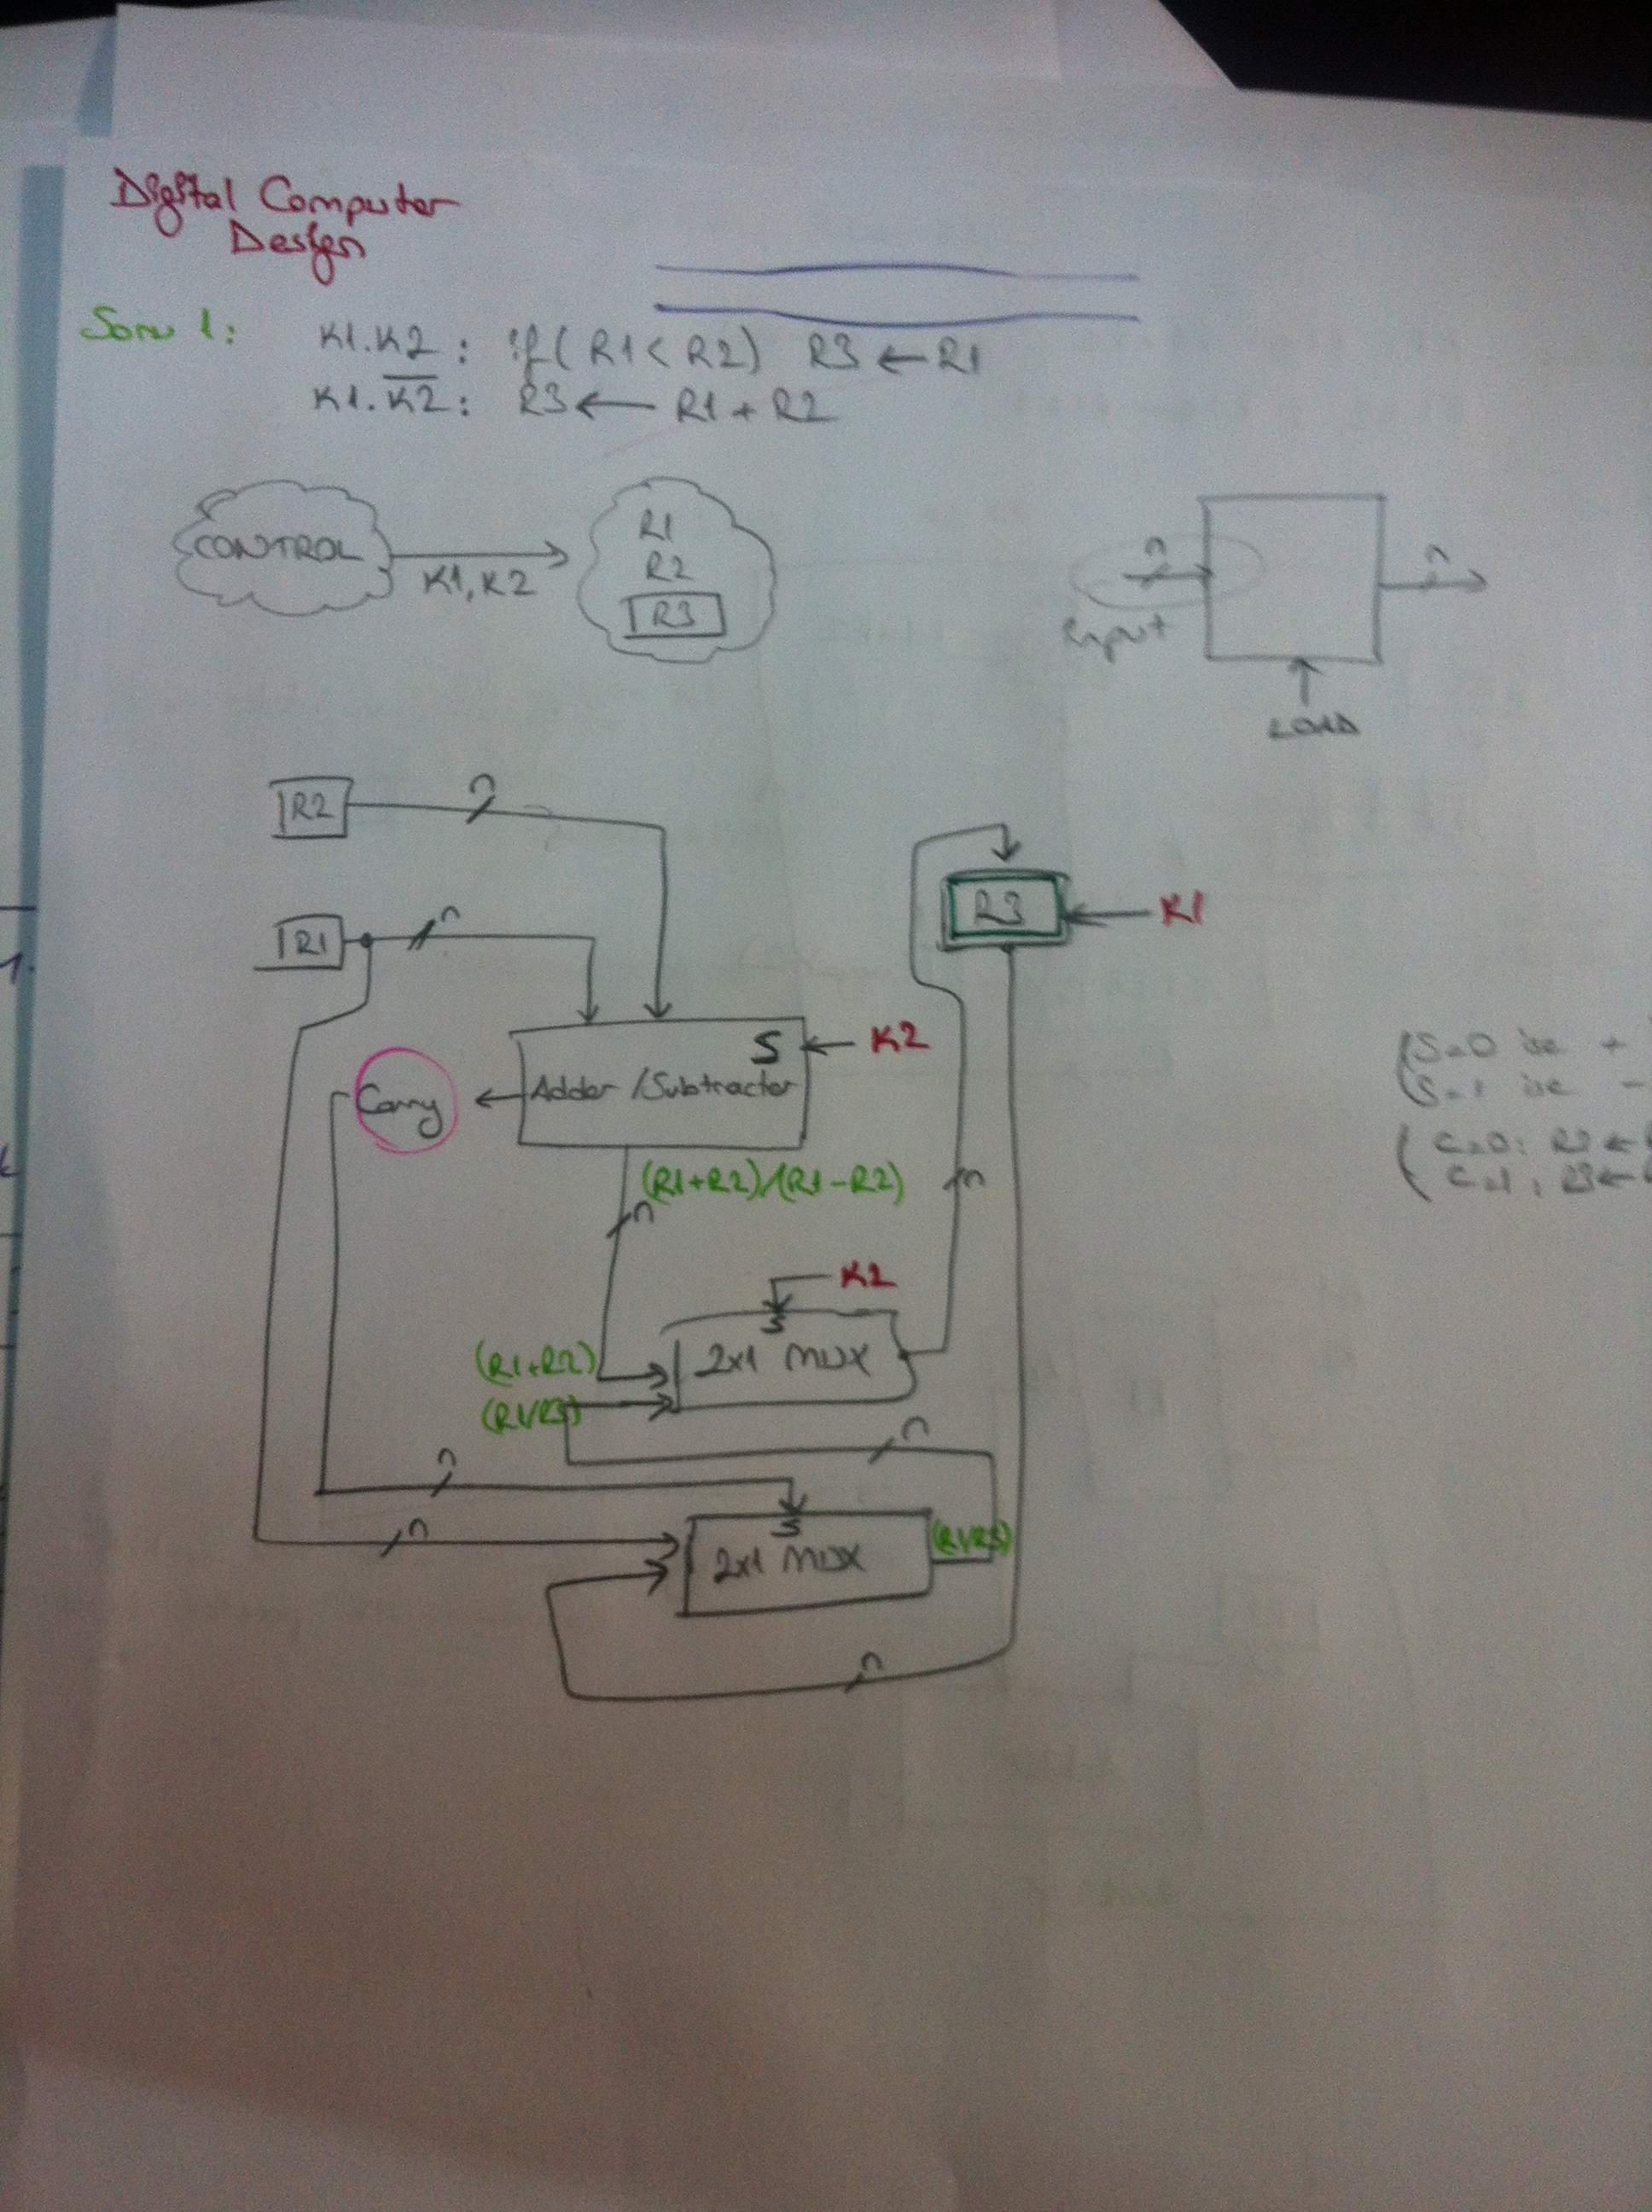 Digital Computer
Design
Soru 1:
K1.K2 : if( R1 < R2) R3 ← R1
K1.K̅2̅ : R3 ← R1 + R2
CONTROL
K1, K2
R1
R2
R3
n
n
Input
LOAD
R2
n
R1
n
R3
K1
S
K2
Carry
Adder /Subtractor
(R1+R2)/(R1-R2)
n
n
K2
S
2x1 MUX
(R1+R2)
(R1/R3)
n
n
n
S
2x1 MUX
(R1/R3)
n
S=0 ise +
S=1 ise -
C=0: R3 ←
C=1: R3 ←